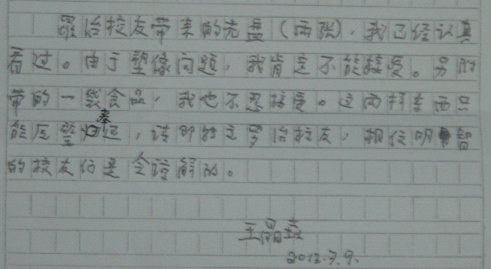 给校友带来的光盘（两张），我已经认真
看过。由于塑像问题，我肯定不能接受。另附
带的一袋食品，我也不能接受。这两样东西只
能原璧归还，请 给校友，相信明智
的校友们是会谅解的。
王晶垚
2012.7.9.